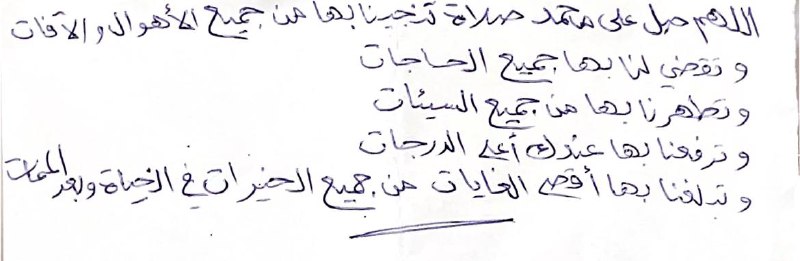 اللهم صل على محمد صلاة تنجينا بها من جميع الأهوال والآفات
و تقضي لنا بها جميع الحاجات
و تطهرنا بها من جميع السيئات
و ترفعنا بها عندك أعلى الدرجات
و تبلغنا بها أقصى الغايات من جميع الخيرات في الحياة وبعد الممات